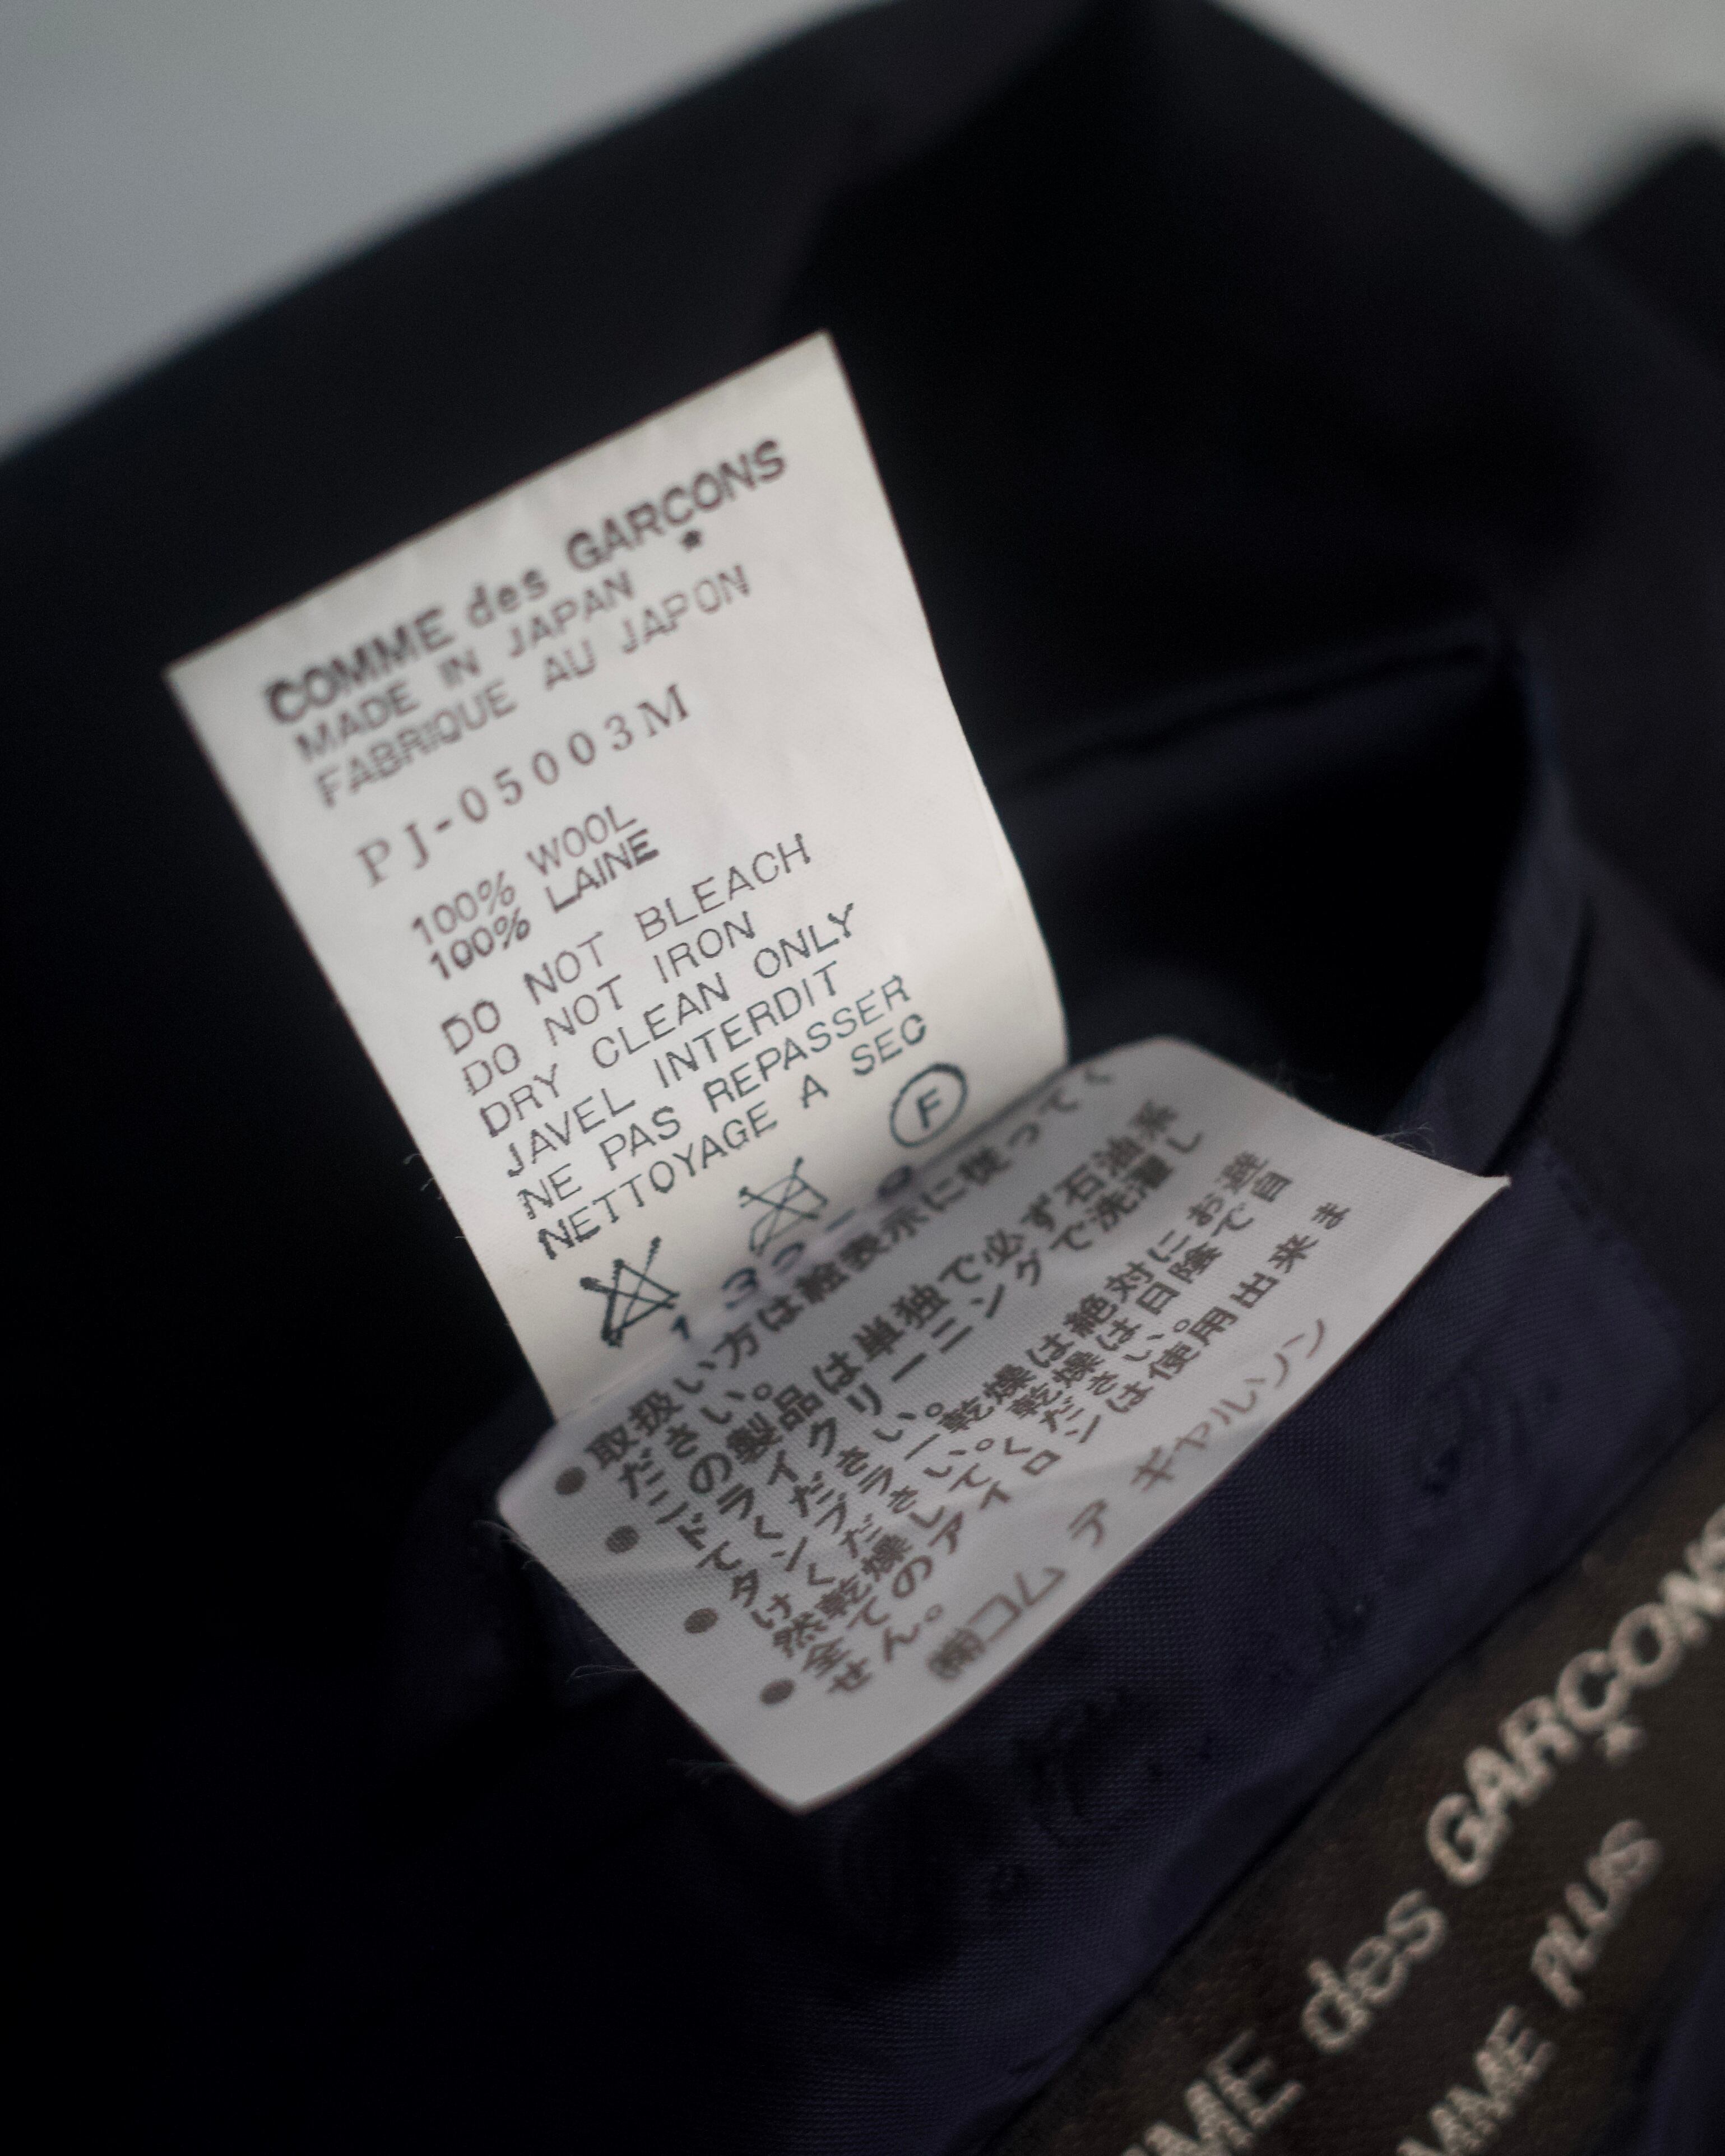 COMME des GARCONS
MADE IN JAPAN
FABRIQUE AU JAPON
PJ-05003M
100% WOOL
100% LAINE
DO NOT BLEACH
DO NOT IRON
DRY CLEAN ONLY
JAVEL INTERDIT
NE PAS REPASSER
NETTOYAGE A SEC
F
●取扱い方は絵表示に従ってく
ださい。
●この製品は単独で必ず石油系
ドライクリーニングで洗濯し
てください。
●タンブラー乾燥は絶対にお避
けください。乾燥は日陰で自
然乾燥してください。
●全てのアイロンは使用出来ま
せん。
㈱コム デ ギャルソン
des GARÇONS
PLUS